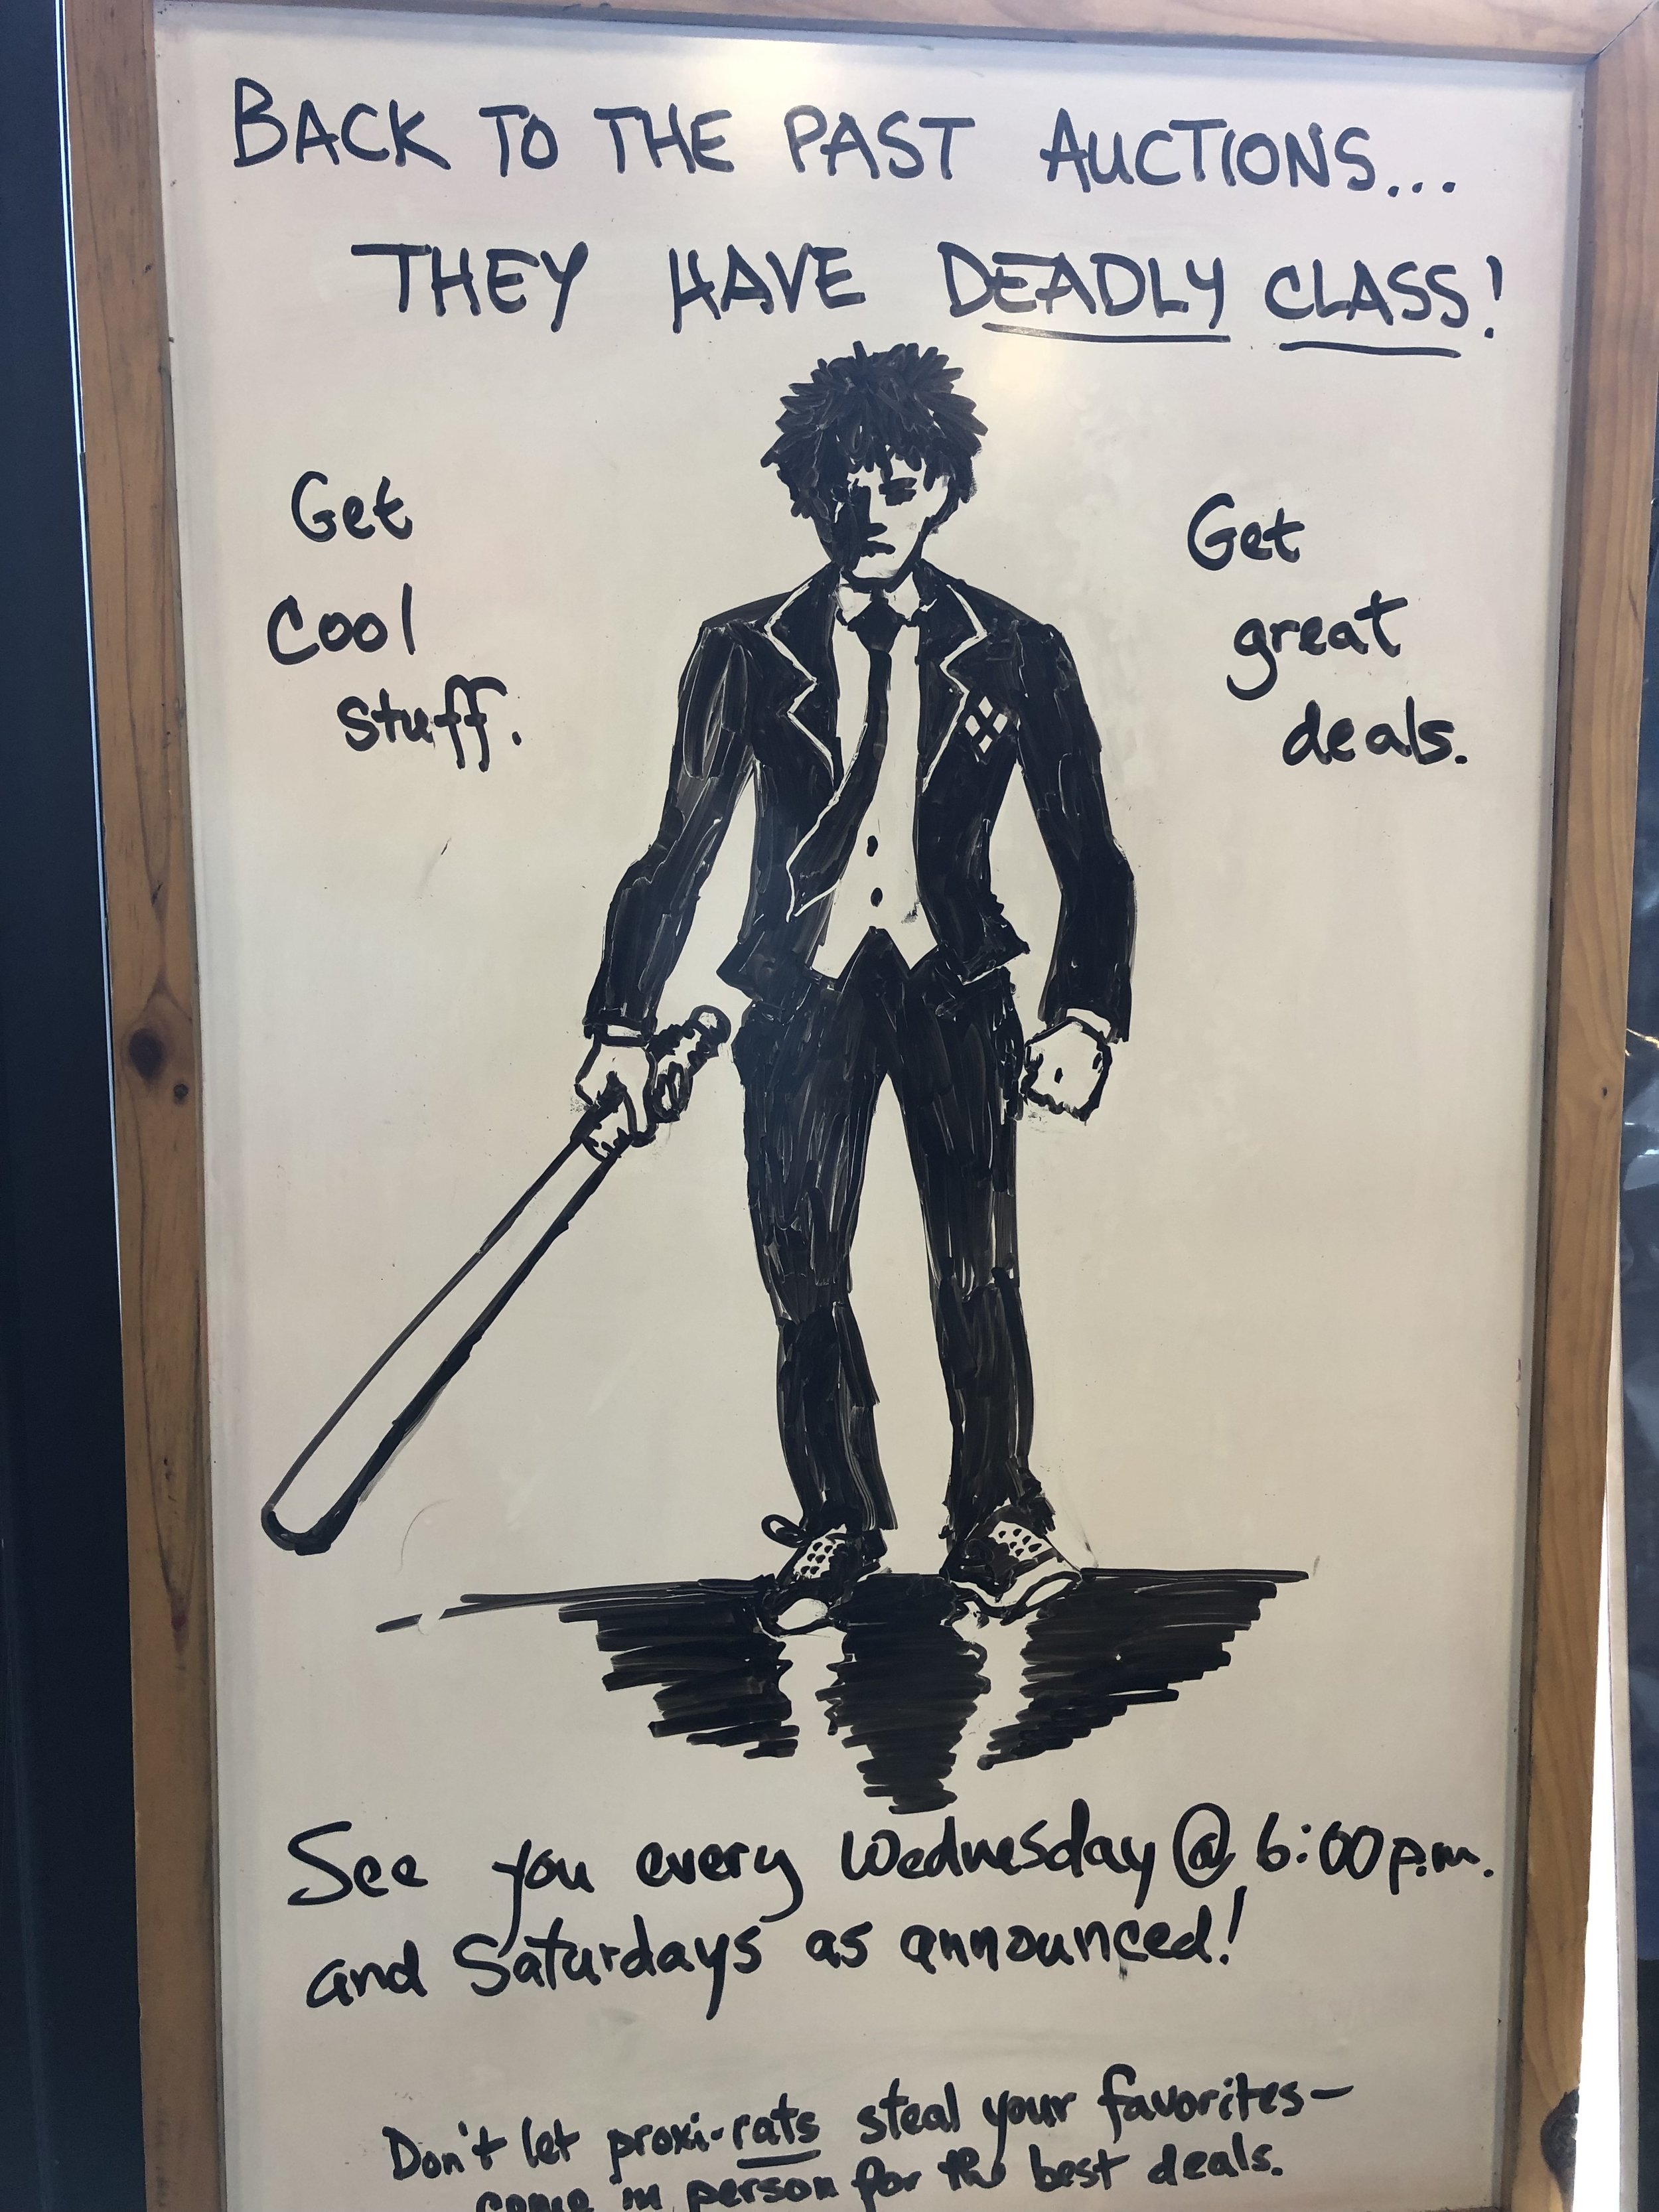 BACK TO THE PAST AUCTIONS...
THEY HAVE DEADLY CLASS!
Get
Cool
stuff.
Get
great
deals.
See you every Wednesday @ 6:00 p.m.
and Saturdays as announced!
Don't let proxi-rats steal your favorites-
come in person for the best deals.